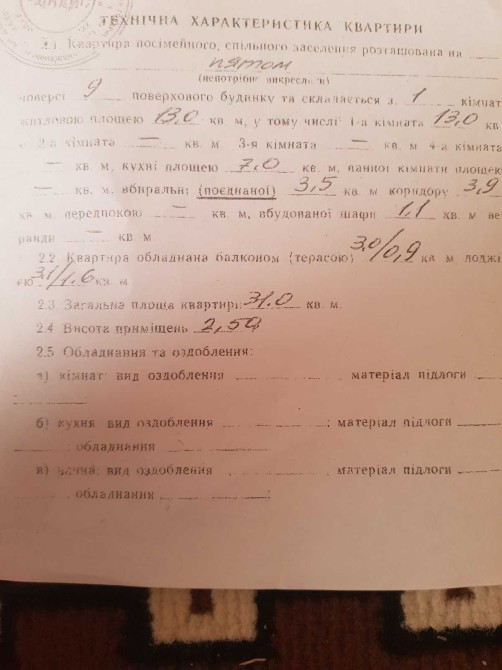 ТЕХНІЧНА ХАРАКТЕРИСТИКА КВАРТИРИ
2.1. Квартира посімейного, спільного заселення розташована на
пятом
(непотрібне викреслити)
поверсі 9 поверхового будинку та складається з 1 кімнат
житловою площею 13,0 кв. м, у тому числі 1-а кімната 13,0 кв.
2-а кімната — кв. м. 3-я кімната — кв. м 4-а кімната
— кв. м, кухні площею 7,0 кв. м, ванної кімнати площею
— кв. м. вбиральні (поєднаної) 3,5 кв. м коридору 3,9
кв. м. передпокою — кв. м, вбудованої шафи 1,1 кв. м ве
ранди — кв. м
2.2. Квартира обладнана балконом (терасою) 3,0/0,9 кв. м лоджі
єю 3,1/1,6 кв. м
2.3. Загальна площа квартири 31,0 кв. м.
2.4. Висота приміщень
2.5. Обладнання та оздоблення:
а) кімнат: вид оздоблення матеріал підлоги
б) кухня вид оздоблення ; матеріал підлоги
; обладнання
в) ванна: вид оздоблення матеріал підлоги
обладнання ;